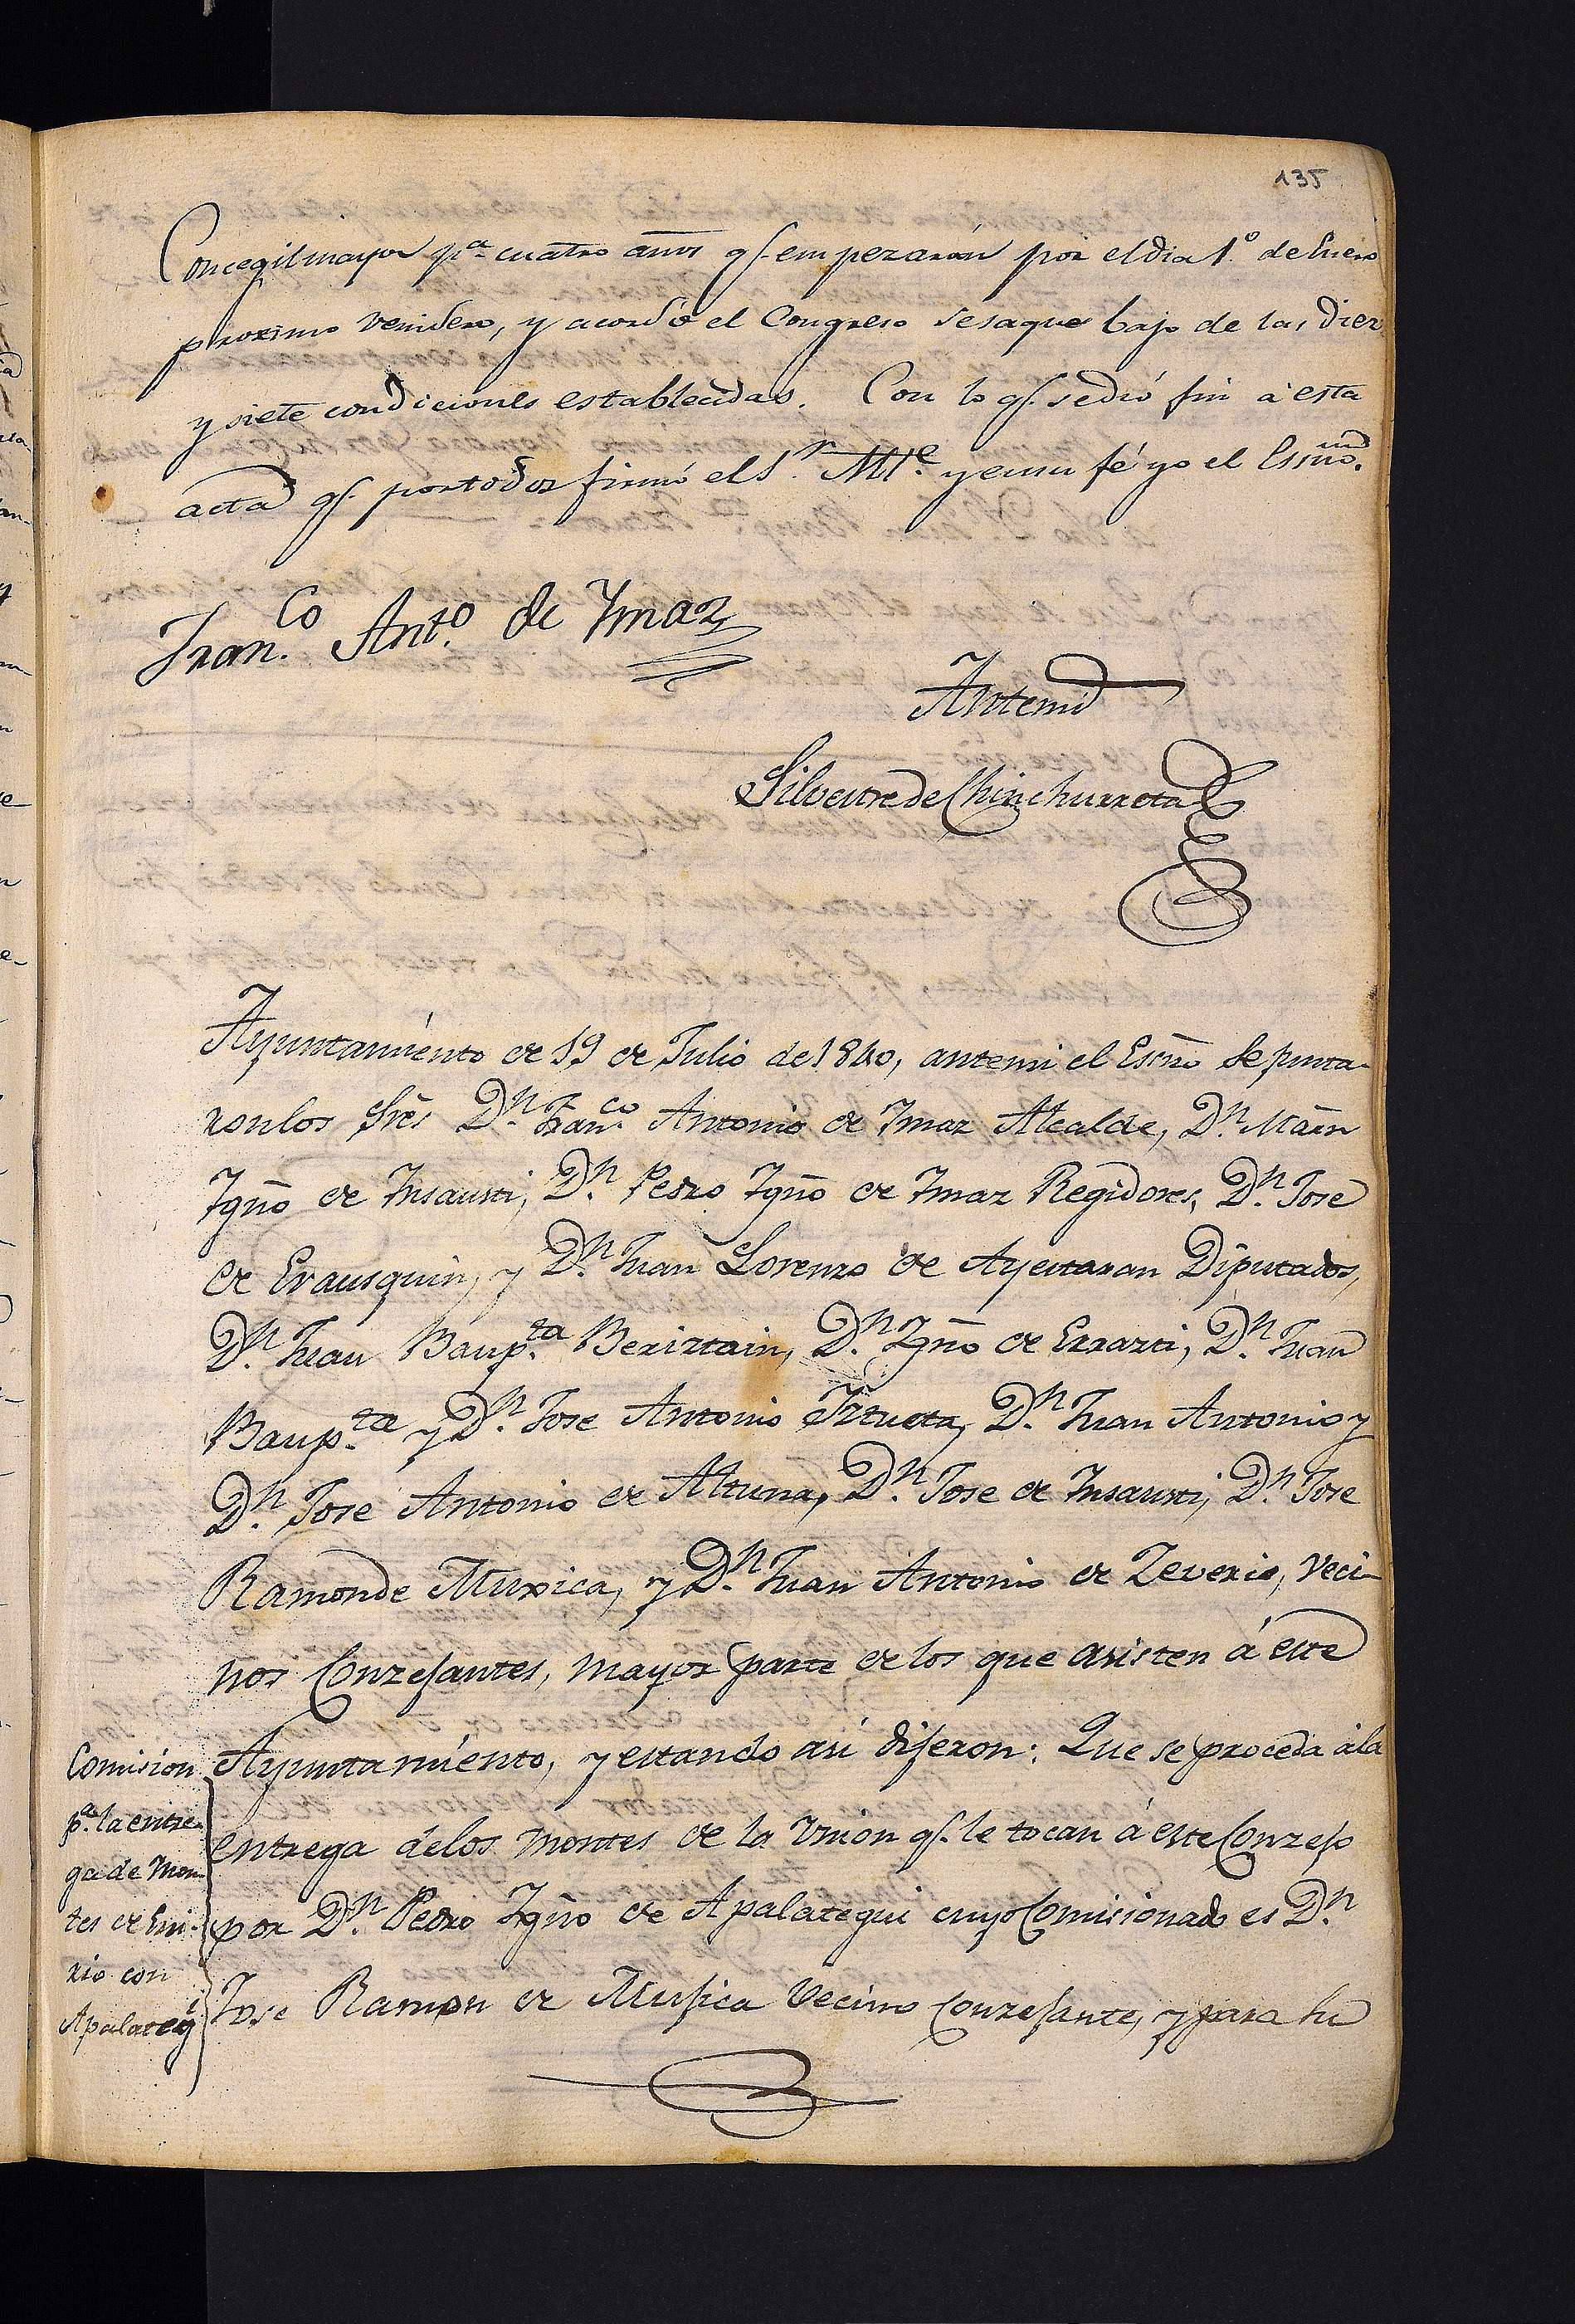 135
Concegil mayor p.ª cuatro años q.e empezarán por el dia 1.º de Enero
proximo venidero, y acordó el Congreso se saque bajo de las diez
y siete condiciones establecidas. Con lo q.e se dió fin á esta
acta q.e por todos firmó el S.r Alc.e y en su fé yo el Essno.
Fran.co Ant.o de Ymaz
Antemi
Silvestre de Chinchurreta
Ayuntamiento de 19 de Julio de 1840, antemi el Esno se punta-
ron los Sres D.n Fran.co Antonio de Ymaz Alcalde, D.n Marn
Ygno de Insausti, D.n Pedro Ygno de Ymaz Regidores, D.n Jose
de Erausquin, y D.n Juan Lorenzo de Ayestaran Diputados,
D.n Juan Baup.ta Beriztain, D.n Ygno de Errazti, D.n Juan
Baup.ta y D.n Jose Antonio Iztueta, D.n Juan Antonio y
D.n Jose Antonio de Altuna, D.n Jose de Insausti, D.n Jose
Ramon de Muxica, y D.n Juan Antonio de Zeverio, Veci-
nos Conzejantes, mayor parte de los que asisten á este
Comision
Ayuntamiento, y estando asi dijeron: Que se proceda ala
p.a la entre-
entrega delos montes de la Union q.e le tocan á este Conzejo
ga de Mon-
tes de Eni-
por D.n Pedro Ygno de Apalategui cuyo Comisionado es D.n
rio con
Apalateg.i
Jose Ramon de Mujica Vecino Conzejante, y para su